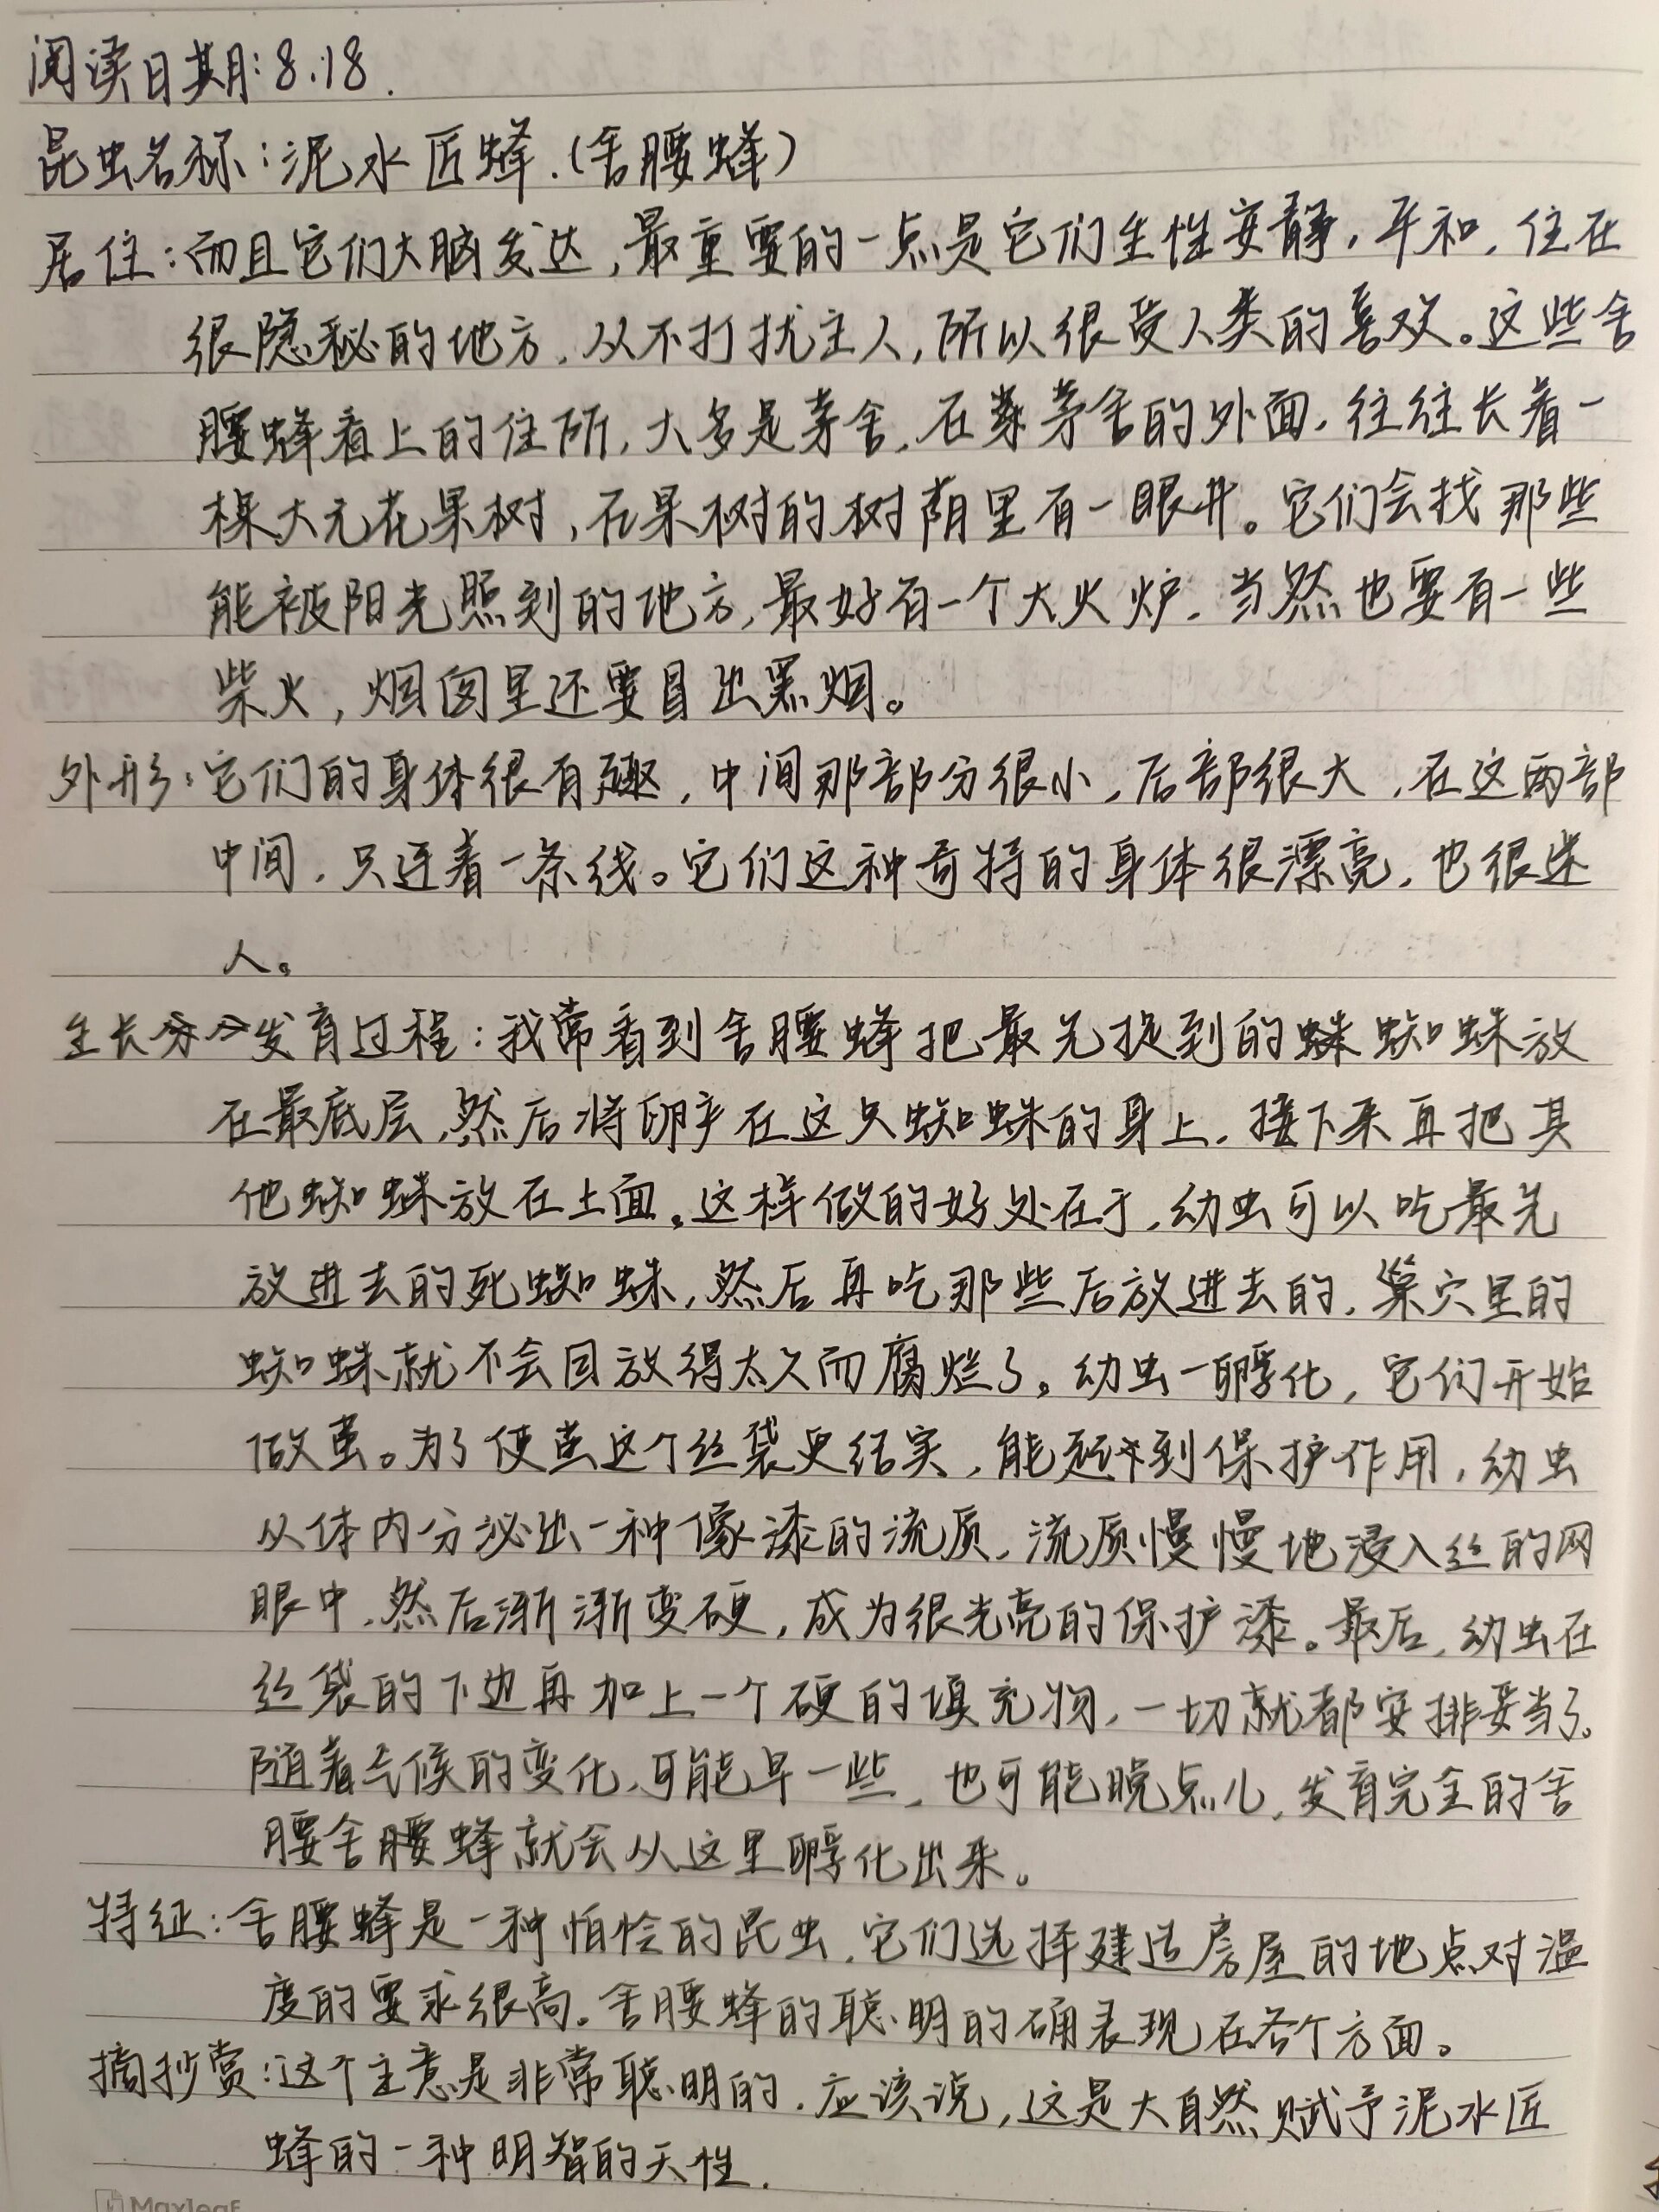 阅读日期:8.18.
昆虫名称:泥水匠蜂.(舍腰蜂)
居住:而且它们大脑发达,最重要的一点是它们生性安静,平和,住在
很隐秘的地方,从不打扰主人,所以很受人类的喜欢。这些舍
腰蜂看上的住所,大多是茅舍,在茅舍的外面,往往长着一
棵大无花果树,在果树的树荫里有一眼井。它们会找那些
能被阳光照到的地方,最好有一个大火炉,当然也要有一些
柴火,烟囱里还要冒出黑烟。
外形:它们的身体很有趣,中间那部分很小,后部很大,在这两部
中间,只连着一条线。它们这种奇特的身体很漂亮,也很迷
人。
生长发育过程:我常看到舍腰蜂把最先捉到的蜘蛛放
在最底层,然后将卵产在这只蜘蛛的身上,接下来再把其
他蜘蛛放在上面。这样做的好处在于,幼虫可以吃最先
放进去的死蜘蛛,然后再吃那些后放进去的,巢穴里的
蜘蛛就不会因放得太久而腐烂了。幼虫一孵化,它们开始
做茧。为了使茧这个丝袋更结实,能起到保护作用,幼虫
从体内分泌出一种像漆的流质,流质慢慢地浸入丝的网
眼中,然后渐渐变硬,成为很光亮的保护漆。最后,幼虫在
丝袋的下边再加上一个硬的填充物,一切就都安排妥当了。
随着气候的变化,可能早一些,也可能晚点儿,发育完全的舍
腰舍腰蜂就会从这里孵化出来。
特征:舍腰蜂是一种怕冷的昆虫,它们选择建造房屋的地点对温
度的要求很高。舍腰蜂的聪明的确表现在各个方面。
摘抄赏:这个主意是非常聪明的,应该说,这是大自然赋予泥水匠
蜂的一种明智的天性.
Maxleaf